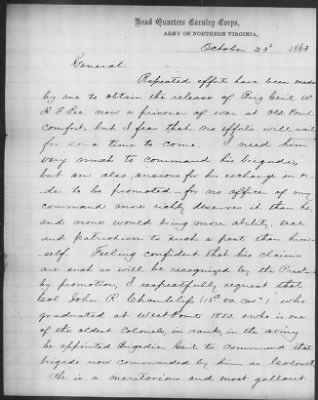 Head Quarters Cavalry Corps,
ARMY OF NORTHERN VIRGINIA,
October 23d 1863
General
Repeated efforts have been made
by me to obtain the release of Brig Genl W.
H F Lee, now a prisoner of war at Old Point
Comfort, but I fear that no efforts will avail
for some time to come. I need him
very much to command his brigade,
but am also, anxious for his exchange in or-
der to be promoted – for no officer of my
command more richly deserves it than he
and none would bring more ability, zeal
and patriotism to such a post than him-
self. Feeling confident that his claims
are such as will be recognized by the Presdt
by promotion, I respectfully, request that
Col John R. Chambliss (13th Va Cavy) who
graduated at West Point 1853 & who is one
of the oldest Colonels, in rank, in the army
be appointed Brigadier Genl to command that
brigade now commanded by him as Colonel.
He is a meritorious and most gallant